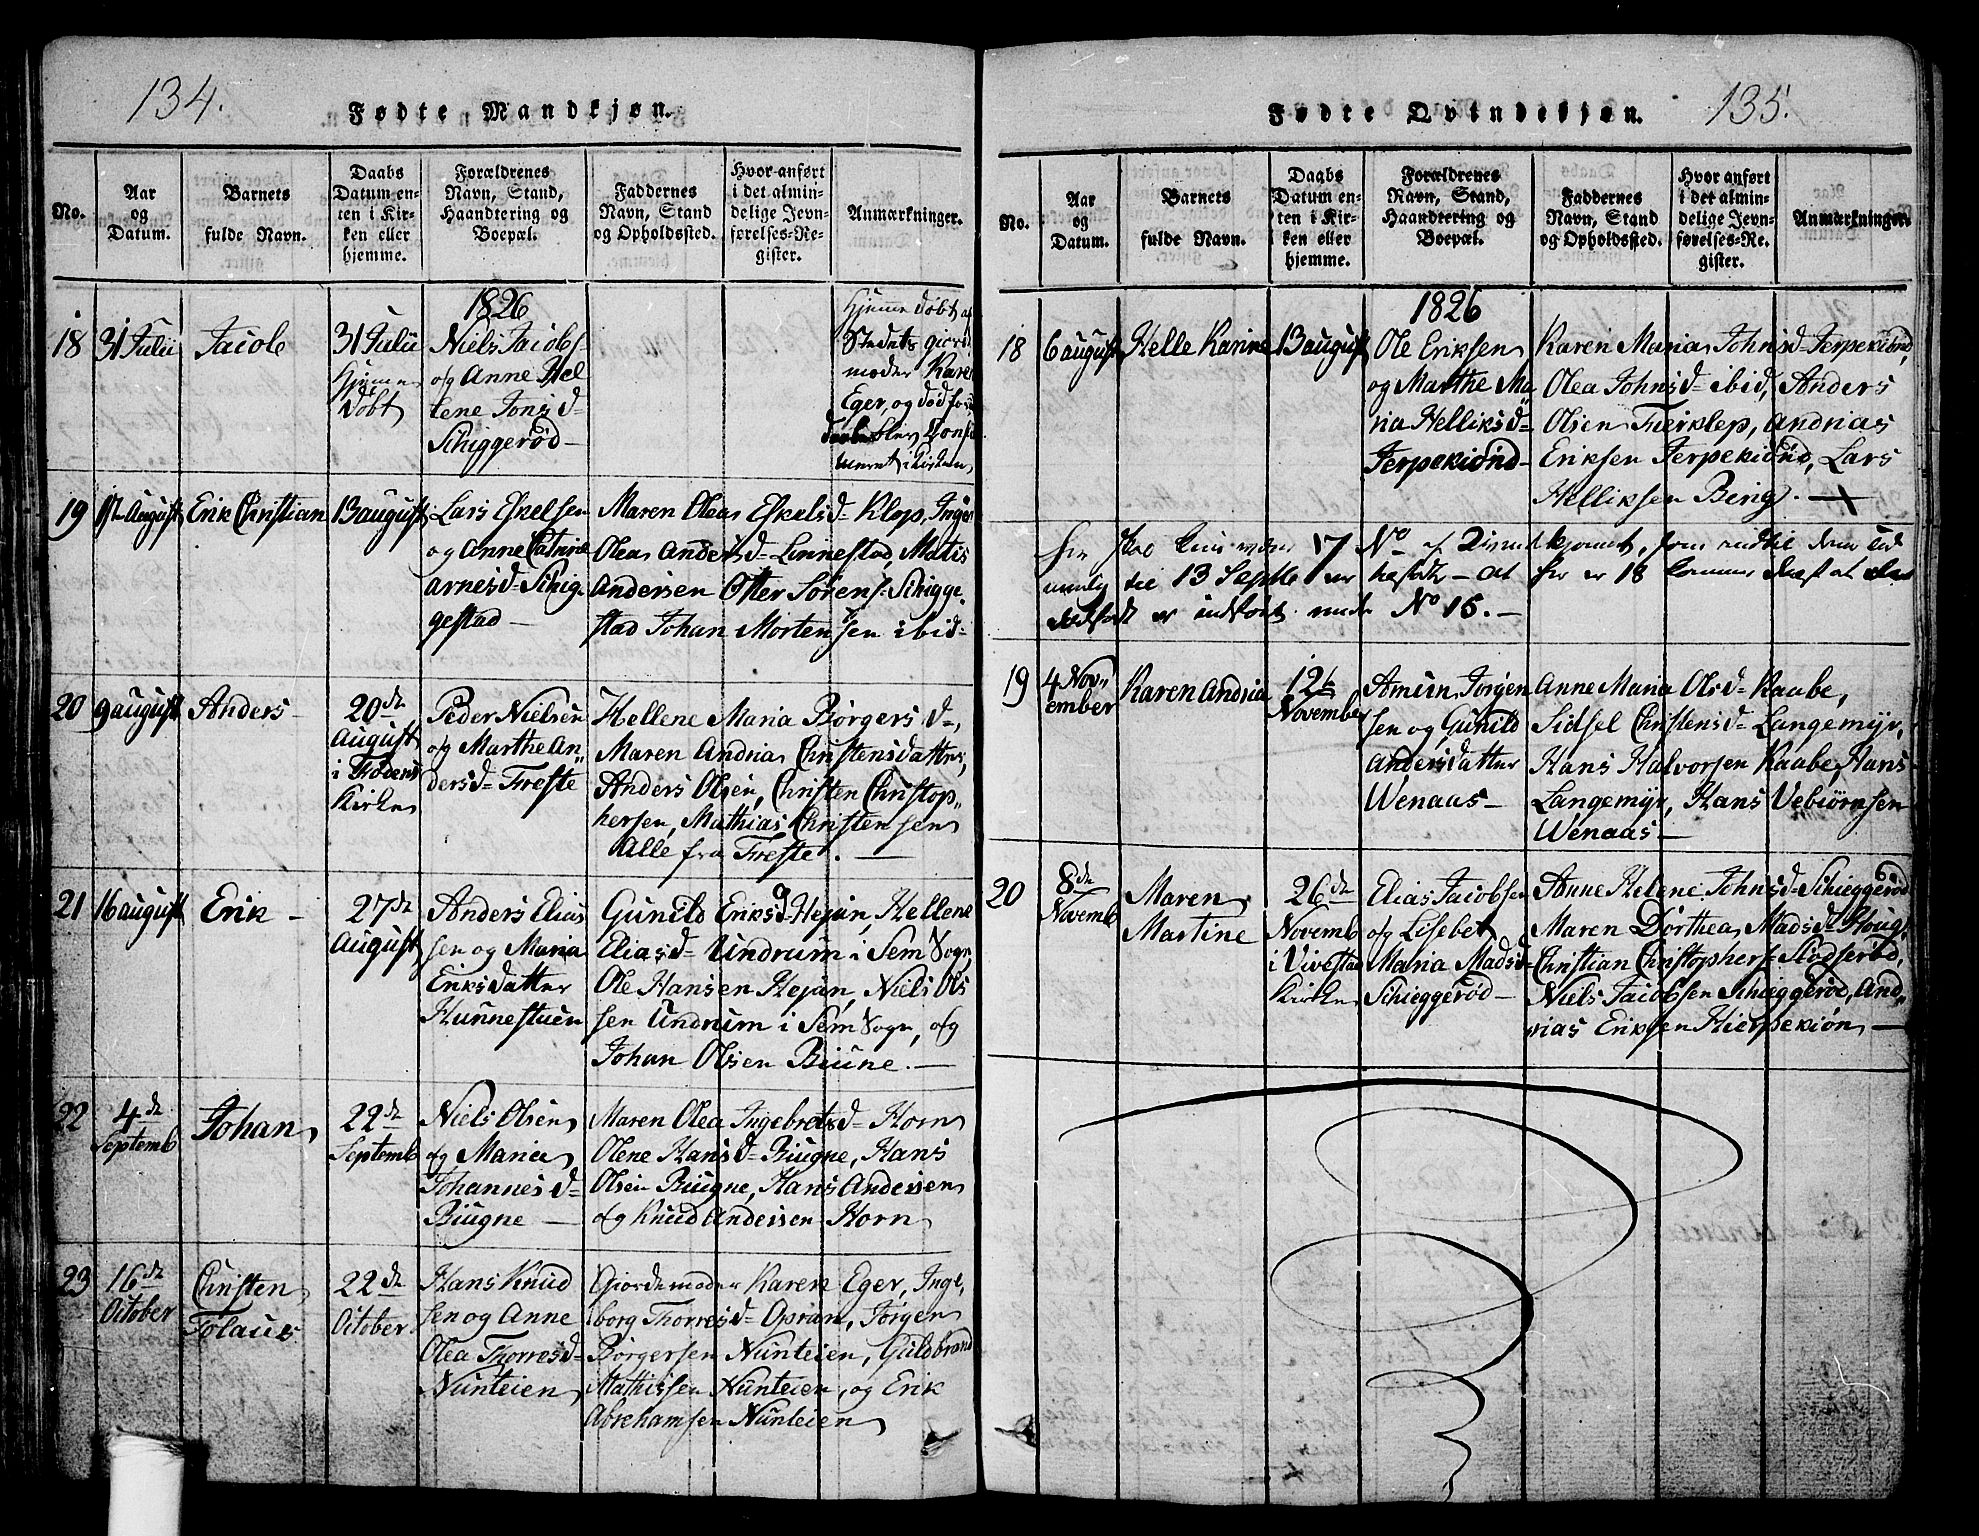 134.
Fødte Mandkjøn.
No.
Aar
og
Datum.
Barnets
fulde Navn.
Daabs
Datum en-
ten i Kir-
ken eller
hjemme.
Forældrenes
Navn, Stand,
Haandtering og
Boepæl.
Faddernes
Navn, Stand
og Opholdssted.
Hvor anført
i det almin-
delige Jevn-
førelses-Re-
gister.
Anmærkninger.
18
31 Julii
Jacob
31 Julii
hjemme
døbt
1826
Niels Jacobs
og Anne Hel
lene Jonsd
Schiggerød
hjemme døbt af
Stedets giord
moder Karen
Eger, og død for
19
August
Erik Christian
13 august
Lars Eskelsen
og Anne Catrine
arnesd Schig
gestad
Maren Olea Eskelsd= Klop, Inger
Olea Andersd= Linnestad, Matis
Andersen Ofter Sørens= Schigge
stad Johan Mortensen ibid=
20
9 august
Anders
20de
August
i Fødens
Kirke
Peder Nielsen
og Marthe An"
dersd= Freste
Hellene Maria Børgers d=,
Maren Andria Christensdatter,
Anders Olsen, Christen Christop"
hersen, Mathias Christensen
Alle fra Freste.
21
16 august
Erik
27de
August
Anders Elias
sen og Maria
Eriksdatter
Hunnestuen
Gunild Eriksd= Hejan, Hellene
Eliasd= Undrum i Sem Sogn,
Ole Hansen Hejan, Niels Ols
sen Undrum i Sem Sogn, og
Johan Olsen Biune.
22
4de
Septemb
Johan
22de
Septemb
Niels Olsen
og Maria
Johannesd=
Biugne
Maren Olea Ingebretsd= Horn
Olene Hansd= Biugne, Hans
Olsen Biugne, Hans Andersen
og Knud Andersen Horn
23
16de
October
Christen
Tolaus
22de
October
Hans Knud
sen og Anne
Olea Thorresd=
Nunteien
Giordemoder Karen Eger, Inge
borg Thorresd= Opram, Jørgen
Børgersen Nunteien, Guldbrand
Mathissen Nunteien, og Erik
Abrehamsen Nunteien
135.
Fødte Qvindekjøn.
No.
Aar
og
Datum.
Barnets
fulde Navn.
Daabs
Datum en-
ten i Kir-
ken eller
hjemme.
Forældrenes
Navn, Stand,
Haandtering og
Boepæl.
Faddernes
Navn, Stand
og Opholdssted.
Hvor anført
i det almin-
delige Jevn-
førelses-Re-
gister.
Anmærkninger.
18
6 august
Helle Karine
13 august
1826
Ole Eriksen
og Marthe Ma
ria Helliksd=
Jerpekiønd
Karen Maria Johnsd= Jerpekiønd,
Olea Johnsd= ibid, Anders
Olsen Fierklep, Andrias
Eriksen Jerpekiønd, Lars
Helliksen Berig.
17 No af
til 13 Septb at her er 18
er indført under No 15.
19
4 Nov"
ember
Karen Andria
12te
November
Amun Jørgen
sen og Gunild
Andersdatter
Wenaas
Anne Maria Olsd= Raabe,
Sidsel Christensd= Langemyr,
Hans Halvorsen Raabe, Hans
Langemyr, Hans Vebiørnsen
Wenaas
20
8de
Novemb
Maren
Martine
26de
Novemb
i Vivestad
Kirke
Elias Jacobsen
og Lisebet
Maria Madsd=
Schieggerød
Anne Helene Johnsd= Schieggerød
Maren Dorthea, Madsd= Houg,
Christian Christophers=
Niels Jacobsen Schieggerød, And"
rias Eriksen Hierpekiøn